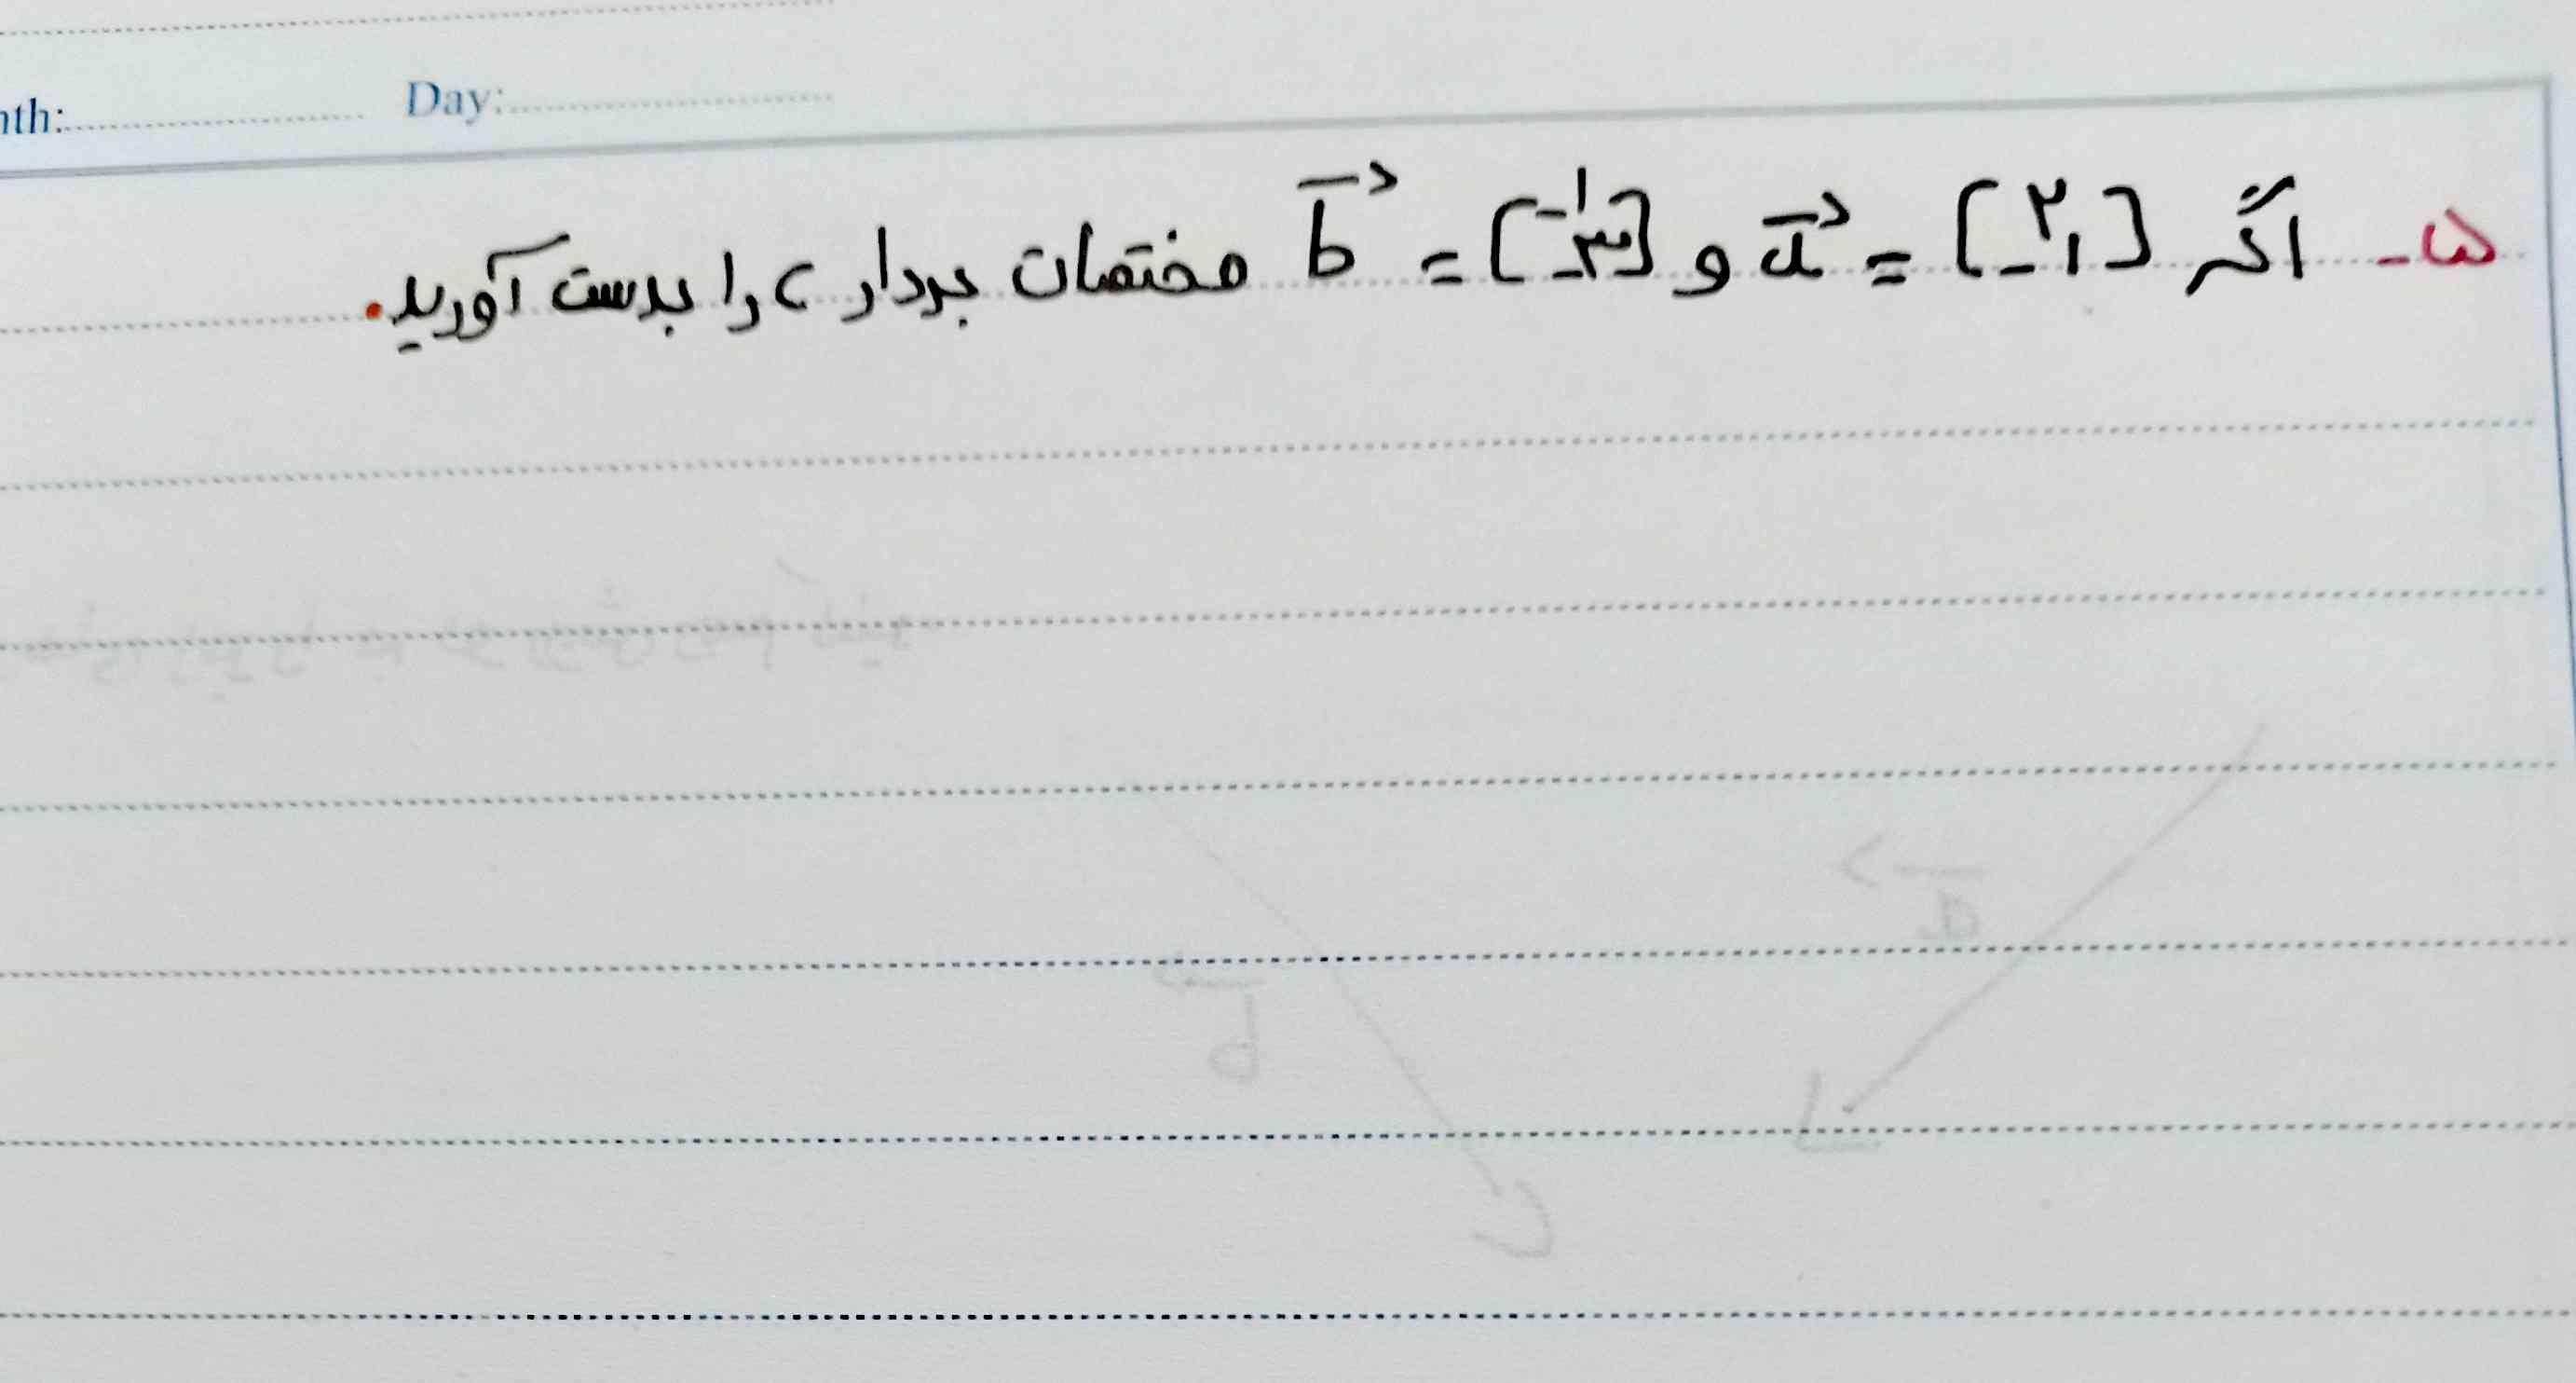 nth:............ Day:............
۵- اگر [۲ -۱] = a⃗ و [-۱ -۳] = b⃗ مختصات بردار c را بدست آورید.